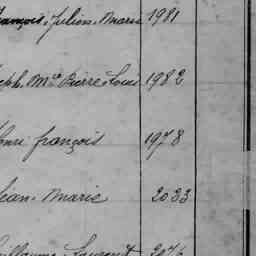 françois, Julien, Marie 1981
Mie Pierre Louis 1982
françois 1978
Jean-Marie 2033
Guillaume Laurent